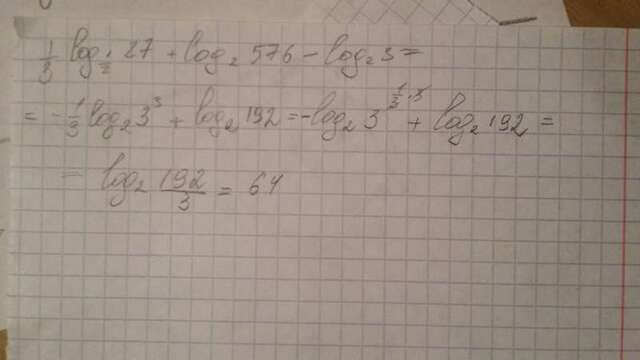 1/3 log_{1/2} 27 + log_2 576 - log_2 3 =
= -1/3 log_2 3^3 + log_2 192 = -log_2 3^{1/3 · 3} + log_2 192 =
= log_2 192/3 = 64